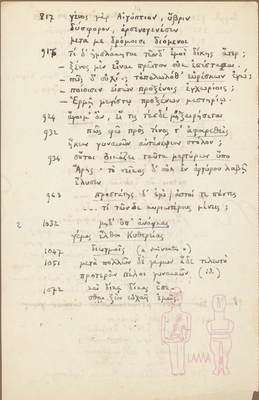 817 γένος γὰρ Αἰγύπτιον, ὕβριν
δύσφορον, ἀρσενογενὲς
μετά με δρόμοισι διόμενοι
916 τί δ' ἠμπλάκηται τῶνδ' ἐμοὶ δίκης ἄτερ;
— ξένος μὲν εἶναι πρῶτον οὐκ ἐπίστασαι.
— πῶς δ' οὐχί; τἀπολωλόθ' εὑρίσκων ἐγώ;
— ποίοισιν εἰπὼν προξένοις ἐγχωρίοις;
— Ἑρμῇ μεγίστῳ προξένων μαστηρίῳ.
924 ἄγοιμ' ἄν, εἴ τις τάσδε μὴ 'ξαιρήσεται
932 πῶς φῶ πρὸς τίνος τ' ἀφαιρεθεὶς
ἥκειν γυναικῶν αὐτανέψιον στόλον;
934 οὔτοι δικάζει ταῦτα μαρτύρων ὕπο
Ἄρης· τὸ νεῖκος δ' οὐκ ἐν ἀργύρου λαβῇ
ἔλυσεν
963 προστάτης δ' ἐγὼ / ἀστοί τε πάντες
... τί τῶνδε κυριωτέρους μένεις;
1032 μηδ' ὑπ' ἀνάγκας
γάμος ἔλθοι Κυθερείας
1047 διωγμοῖς
1051 μετὰ πολλῶν δὲ γάμων ἅδε τελευτὰ
προτερᾶν πέλοι γυναικῶν (id.)
1072 καὶ δίκᾳ δίκας ἕπε-
σθαι ξὺν εὐχαῖς ἐμαῖς
LAMA